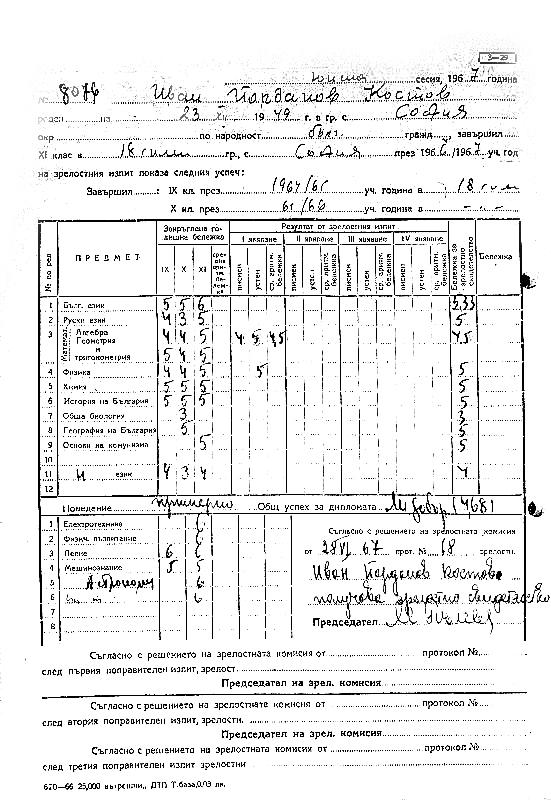 3—29
юнска сесия, 1967 година
№ 8076 Иван Йорданов Костов
роден на 23 XII 1949 г. в гр. с. София
окр. по народност бълг. гражд. завършил
XI клас в 18 гимн. гр., с. София през 1966/1967 уч. год
на зрелостния изпит показа следния успех:
Завършил: IX кл. през 1964/65 уч. година в 18 гимн
X кл. през 65/66 уч. година в -„-
№ по ред
ПРЕДМЕТ
Закръглена годишна бележка
IX X XI
Резултат от зрелостния изпит
I явяване II явяване III явяване IV явяване
писмен устен ср. аритм. бележка писмен устен ср. аритм. бележка писмен устен ср. аритм. бележка писмен устен ср. аритм. бележка
Бележка за зрелостно свидетелство
Бележка
1 Бълг. език 5 5 6 5,33
2 Руски език 4 3 5 5
3 Математ. Алгебра 4 4 5 4 5 4,5 4,5
Геометрия
и
тригонометрия 5 4 5
4 Физика 4 4 5 5 5
5 Химия 5 5 5 5
6 История на България 5 5 5 5
7 Обща биология 3 3
8 География на България 5 5
9 Основи на комунизма 5 5
10
11 език 4 3 4 4
12
Поведение примерно Общ успех за дипломата Мн. добър 4,681
1 Електротехника 6
2 Физич. възпитание 6
3 Пеене 6 6
4 Машинознание 5 5
5 Астрономия 6
6 6
7
8
Съгласно с решението на зрелостната комисия
от 28 VI 67 прот. № 18 зрелостн.
Иван Йорданов Костов
получава зрелостно свидетелство
Председател
Съгласно с решението на зрелостната комисия от протокол №
след първия поправителен изпит, зрелост.
Председател на зрел. комисия
Съгласно с решението на зрелостната комисия от протокол №
след втория поправителен изпит, зрелости.
Председател на зрел. комисия
Съгласно с решението на зрелостната комисия от протокол №
след третия поправителен изпит зрелостни
620—66 25,000 вътрешни, ДТП Т.база,0,03 лв.